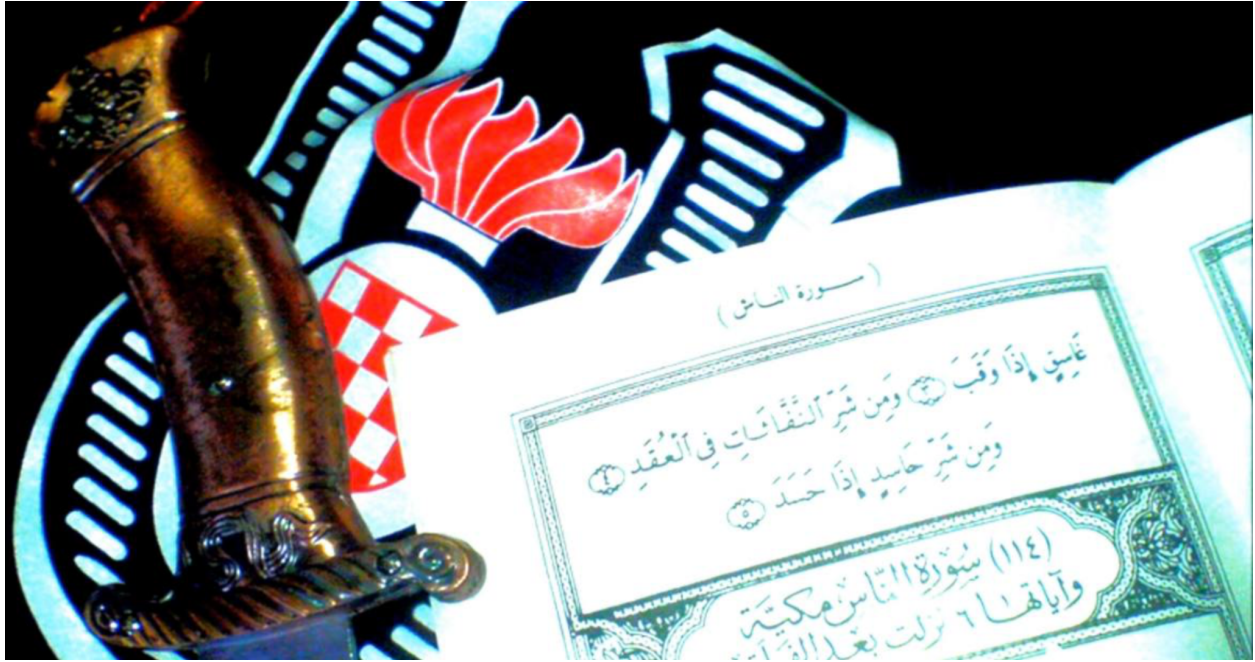 ( سورة الناس )
غَاسِقٍ إِذَا وَقَبَ ٣ وَمِن شَرِّ ٱلنَّفَّاثَاتِ فِي ٱلْعُقَدِ ٤
وَمِن شَرِّ حَاسِدٍ إِذَا حَسَدَ ٥
(١١٤) سُورَةُ النَّاسِ مَكيَّة
وآياتها ٦ نزلت بعد الفلق